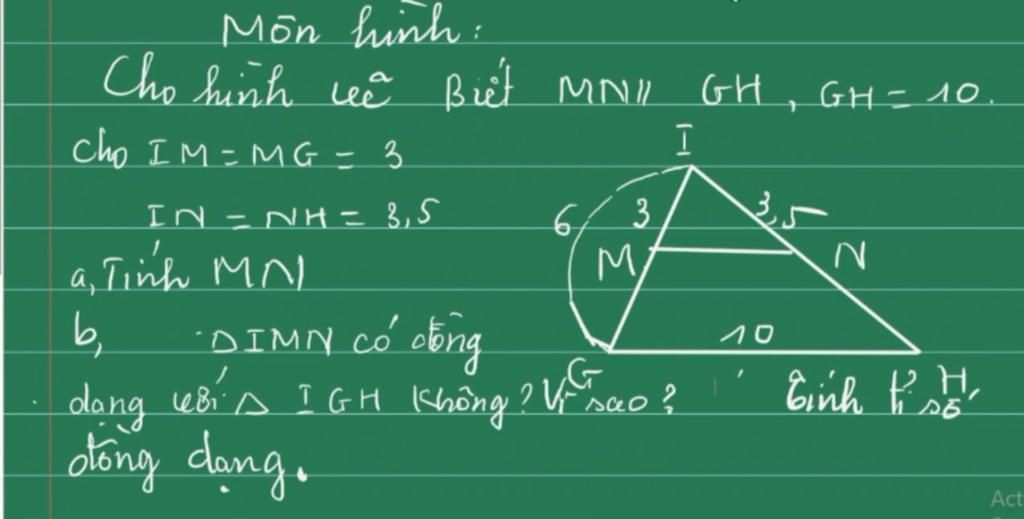 Môn hình:
Cho hình vẽ Biết MN // GH, GH = 10.
Cho IM = MG = 3
IN = NH = 3,5
a, Tính MN
b, ΔIMN có đồng
dạng với Δ IGH không? Vì sao? Tính tỉ số
đồng dạng.
I
6
3
3,5
M
N
10
G
H
Act